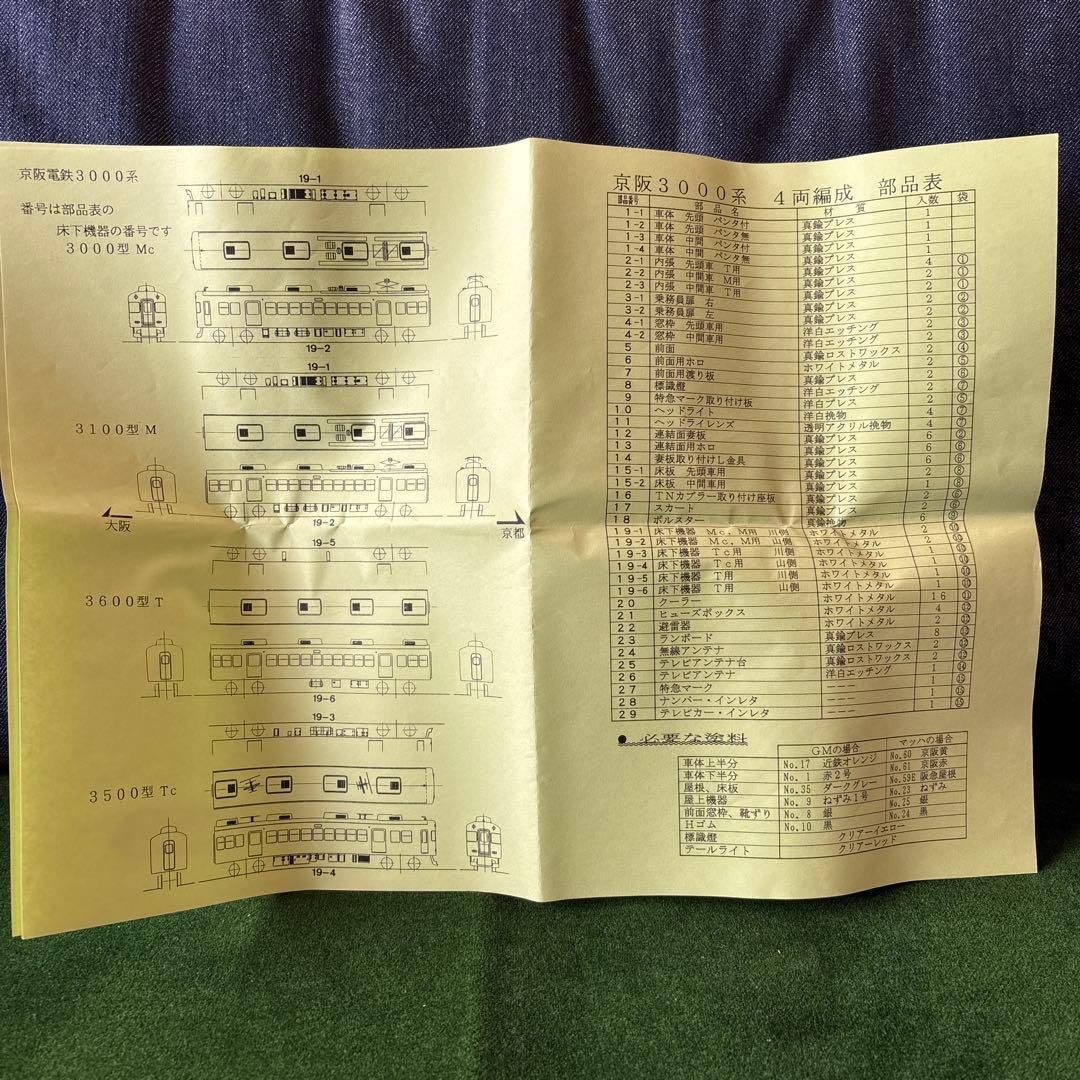 京阪電鉄3000系
番号は部品表の
床下機器の番号です
3000型 Mc
19-1
19-2
19-1
3100型 M
19-2
大阪
京都
19-5
3600型 T
19-6
19-3
3500型 Tc
19-4
京阪3000系 4両編成 部品表
部品名 材質 入数 袋
1-1 車体 先頭 パンタ付 真鍮プレス 1
1-2 車体 先頭 パンタ無 真鍮プレス 1
1-3 車体 中間 パンタ付 真鍮プレス 1
1-4 車体 中間 パンタ無 真鍮プレス 1
2-1 内張 先頭車 T用 真鍮プレス 4 ①
2-2 内張 中間車 M用 真鍮プレス 2 ①
2-3 内張 中間車 T用 真鍮プレス 2 ①
3-1 乗務員扉 右 真鍮プレス 2 ②
3-2 乗務員扉 左 真鍮プレス 2 ②
4-1 窓枠 先頭車用 洋白エッチング 2 ③
4-2 窓枠 中間車用 洋白エッチング 2 ③
5 前面 真鍮ロストワックス 2 ④
6 前面用ホロ ホワイトメタル 2 ⑤
7 前面用渡り板 真鍮プレス 2 ⑥
8 標識燈 洋白エッチング 2 ⑦
9 特急マーク取り付け板 洋白プレス 2 ⑤
10 ヘッドライト 洋白挽物 4 ⑦
11 ヘッドライレンズ 透明アクリル挽物 4 ⑦
12 連結面妻板 真鍮プレス 6 ②
13 連結面用ホロ 真鍮プレス 6 ⑥
14 妻板取り付けし金具 真鍮プレス 6 ⑥
15-1 床板 先頭車用 真鍮プレス 2 ⑧
15-2 床板 中間車用 真鍮プレス 2 ⑧
16 TNカプラー取り付け座板 真鍮プレス 2 ⑥
17 スカート 真鍮プレス 2 ⑥
18 ボルスター 真鍮挽物 6 ⑨
19-1 床下機器 Mc,M用 川側 ホワイトメタル 2 ⑩
19-2 床下機器 Mc,M用 山側 ホワイトメタル 2 ⑩
19-3 床下機器 Tc用 川側 ホワイトメタル 1 ⑩
19-4 床下機器 Tc用 山側 ホワイトメタル 1 ⑩
19-5 床下機器 T用 川側 ホワイトメタル 1 ⑩
19-6 床下機器 T用 山側 ホワイトメタル 1 ⑩
20 クーラー ホワイトメタル 16 ⑪
21 ヒューズボックス ホワイトメタル 4 ⑫
22 避雷器 ホワイトメタル 2 ⑫
23 ランボード 真鍮プレス 8 ⑬
24 無線アンテナ 真鍮ロストワックス 2 ⑫
25 テレビアンテナ台 真鍮ロストワックス 2 ⑬
26 テレビアンテナ 洋白エッチング 1 ⑭
27 特急マーク --- 1 ⑮
28 ナンバー・インレタ --- 1 ⑮
29 テレビカー・インレタ --- 1 ⑮
● 必要な塗料
GMの場合 マッハの場合
車体上半分 No.17 近鉄オレンジ No.60 京阪黄
車体下半分 No.1 赤2号 No.61 京阪赤
屋根、床板 No.35 ダークグレー No.59E 阪急屋根
屋上機器 No.9 ねずみ1号 No.23 ねずみ
前面窓枠、靴ずり No.8 銀 No.25 銀
Hゴム No.10 黒 No.24 黒
標識燈 クリアーイエロー
テールライト クリアーレッド